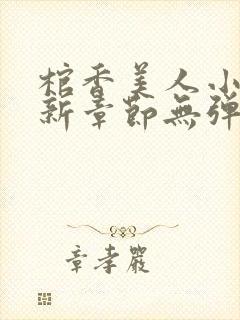 棺香美人小
新章節無彈
章孝嚴